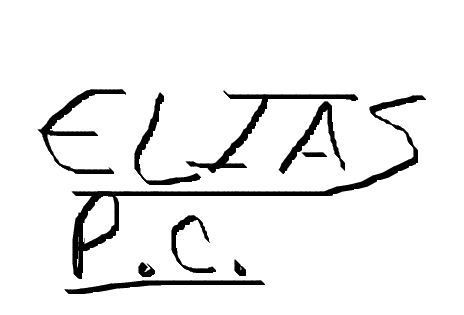 ELIAS
P.C.